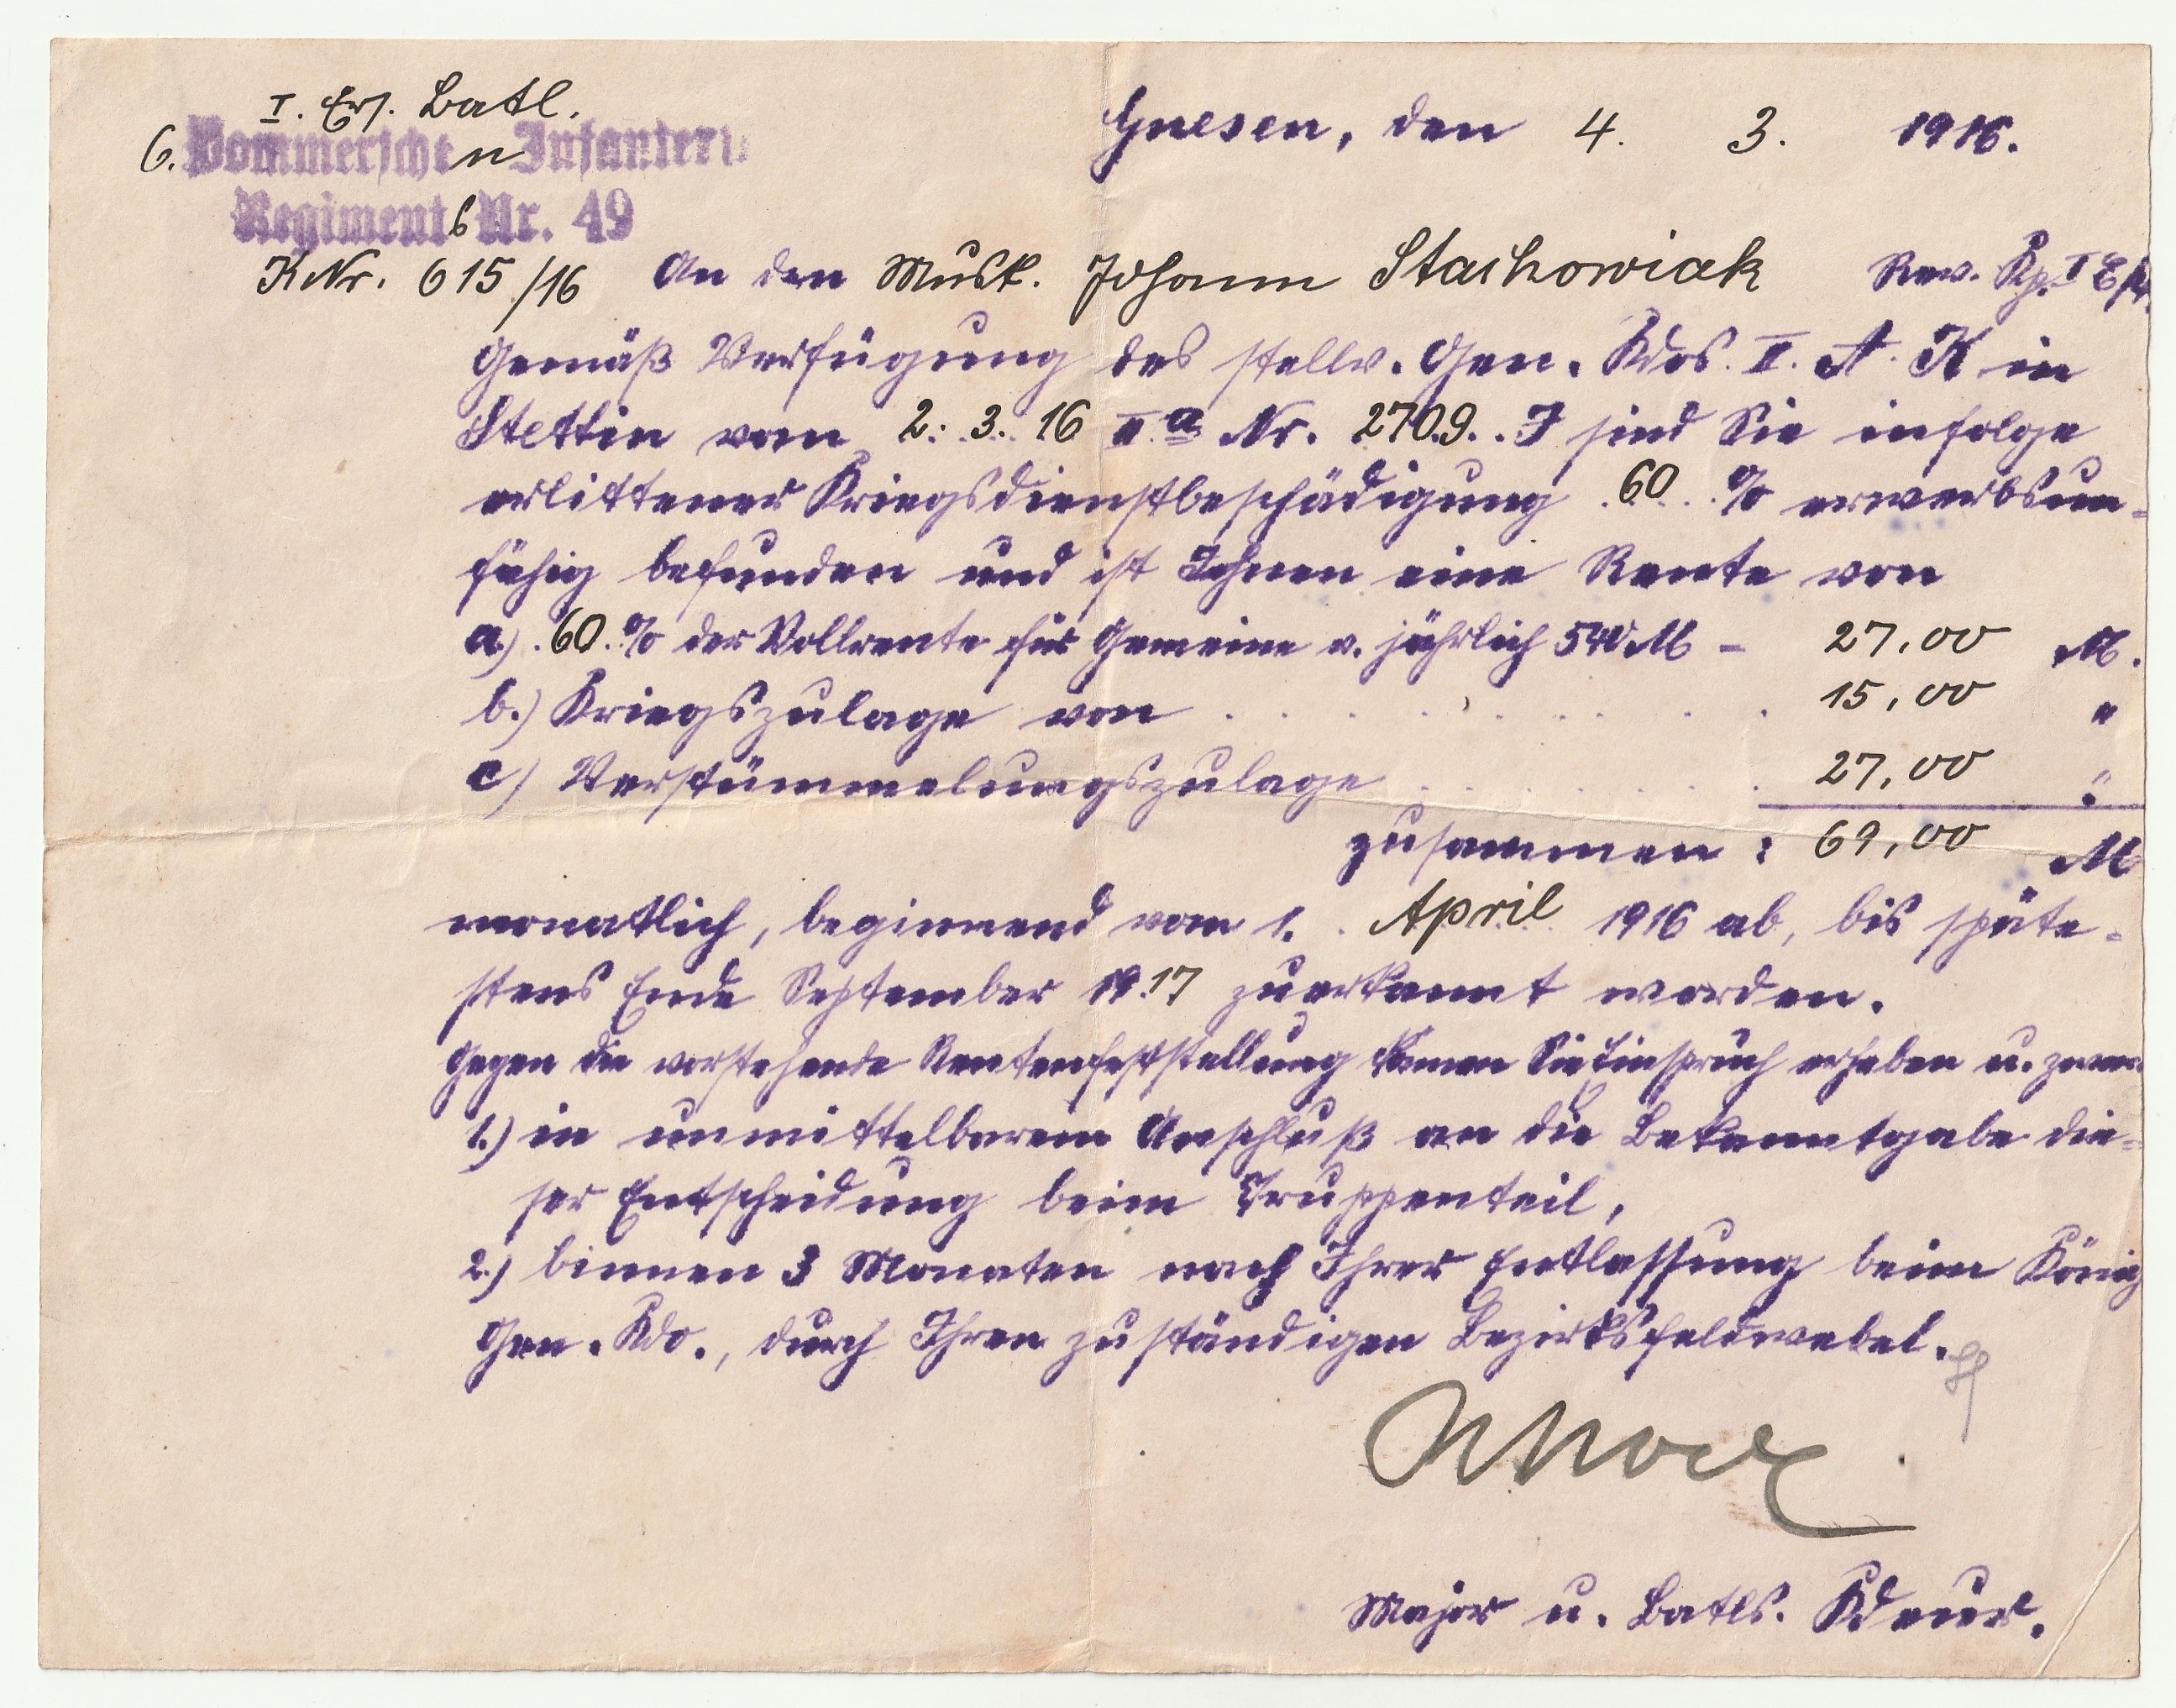 I. Ers. Batl.
6. Pommerschen Infanterie
Regiments Nr. 49
Gnesen, den 4. 3. 1916.
K Nr. 615/16 An den Musk. Johann Stachowiak
Gemäß Verfügung des stellv. Gen. Kdos. II. A. K in
Stettin vom 2. 3. 16 IIa Nr. 2709. J sind Sie infolge
erlittener Kriegsdienstbeschädigung 60 % erwerbsun-
fähig befunden und ist Ihnen eine Rente von
a.) 60 % der Vollrente für Gemeine v. jährlich 540 M - 27,00 M.
b.) Kriegszulage von . . . . . . . . . 15,00 "
c) Verstümmelungszulage . . . . . . 27,00 "
zusammen: 69,00 M
monatlich, beginnend vom 1. April 1916 ab, bis späte-
stens Ende September 1917 zuerkannt worden.
Gegen die vorstehende Rentenfeststellung können Sie Einspruch erheben u. zwar
1.) in unmittelbarem Anschluß an die Bekanntgabe die-
ser Entscheidung beim Truppenteil,
2.) binnen 3 Monaten nach Ihrer Entlassung beim König
Gen. Kdo., durch Ihren zuständigen Bezirksfeldwebel.
Major u. Batls. Kdeur.